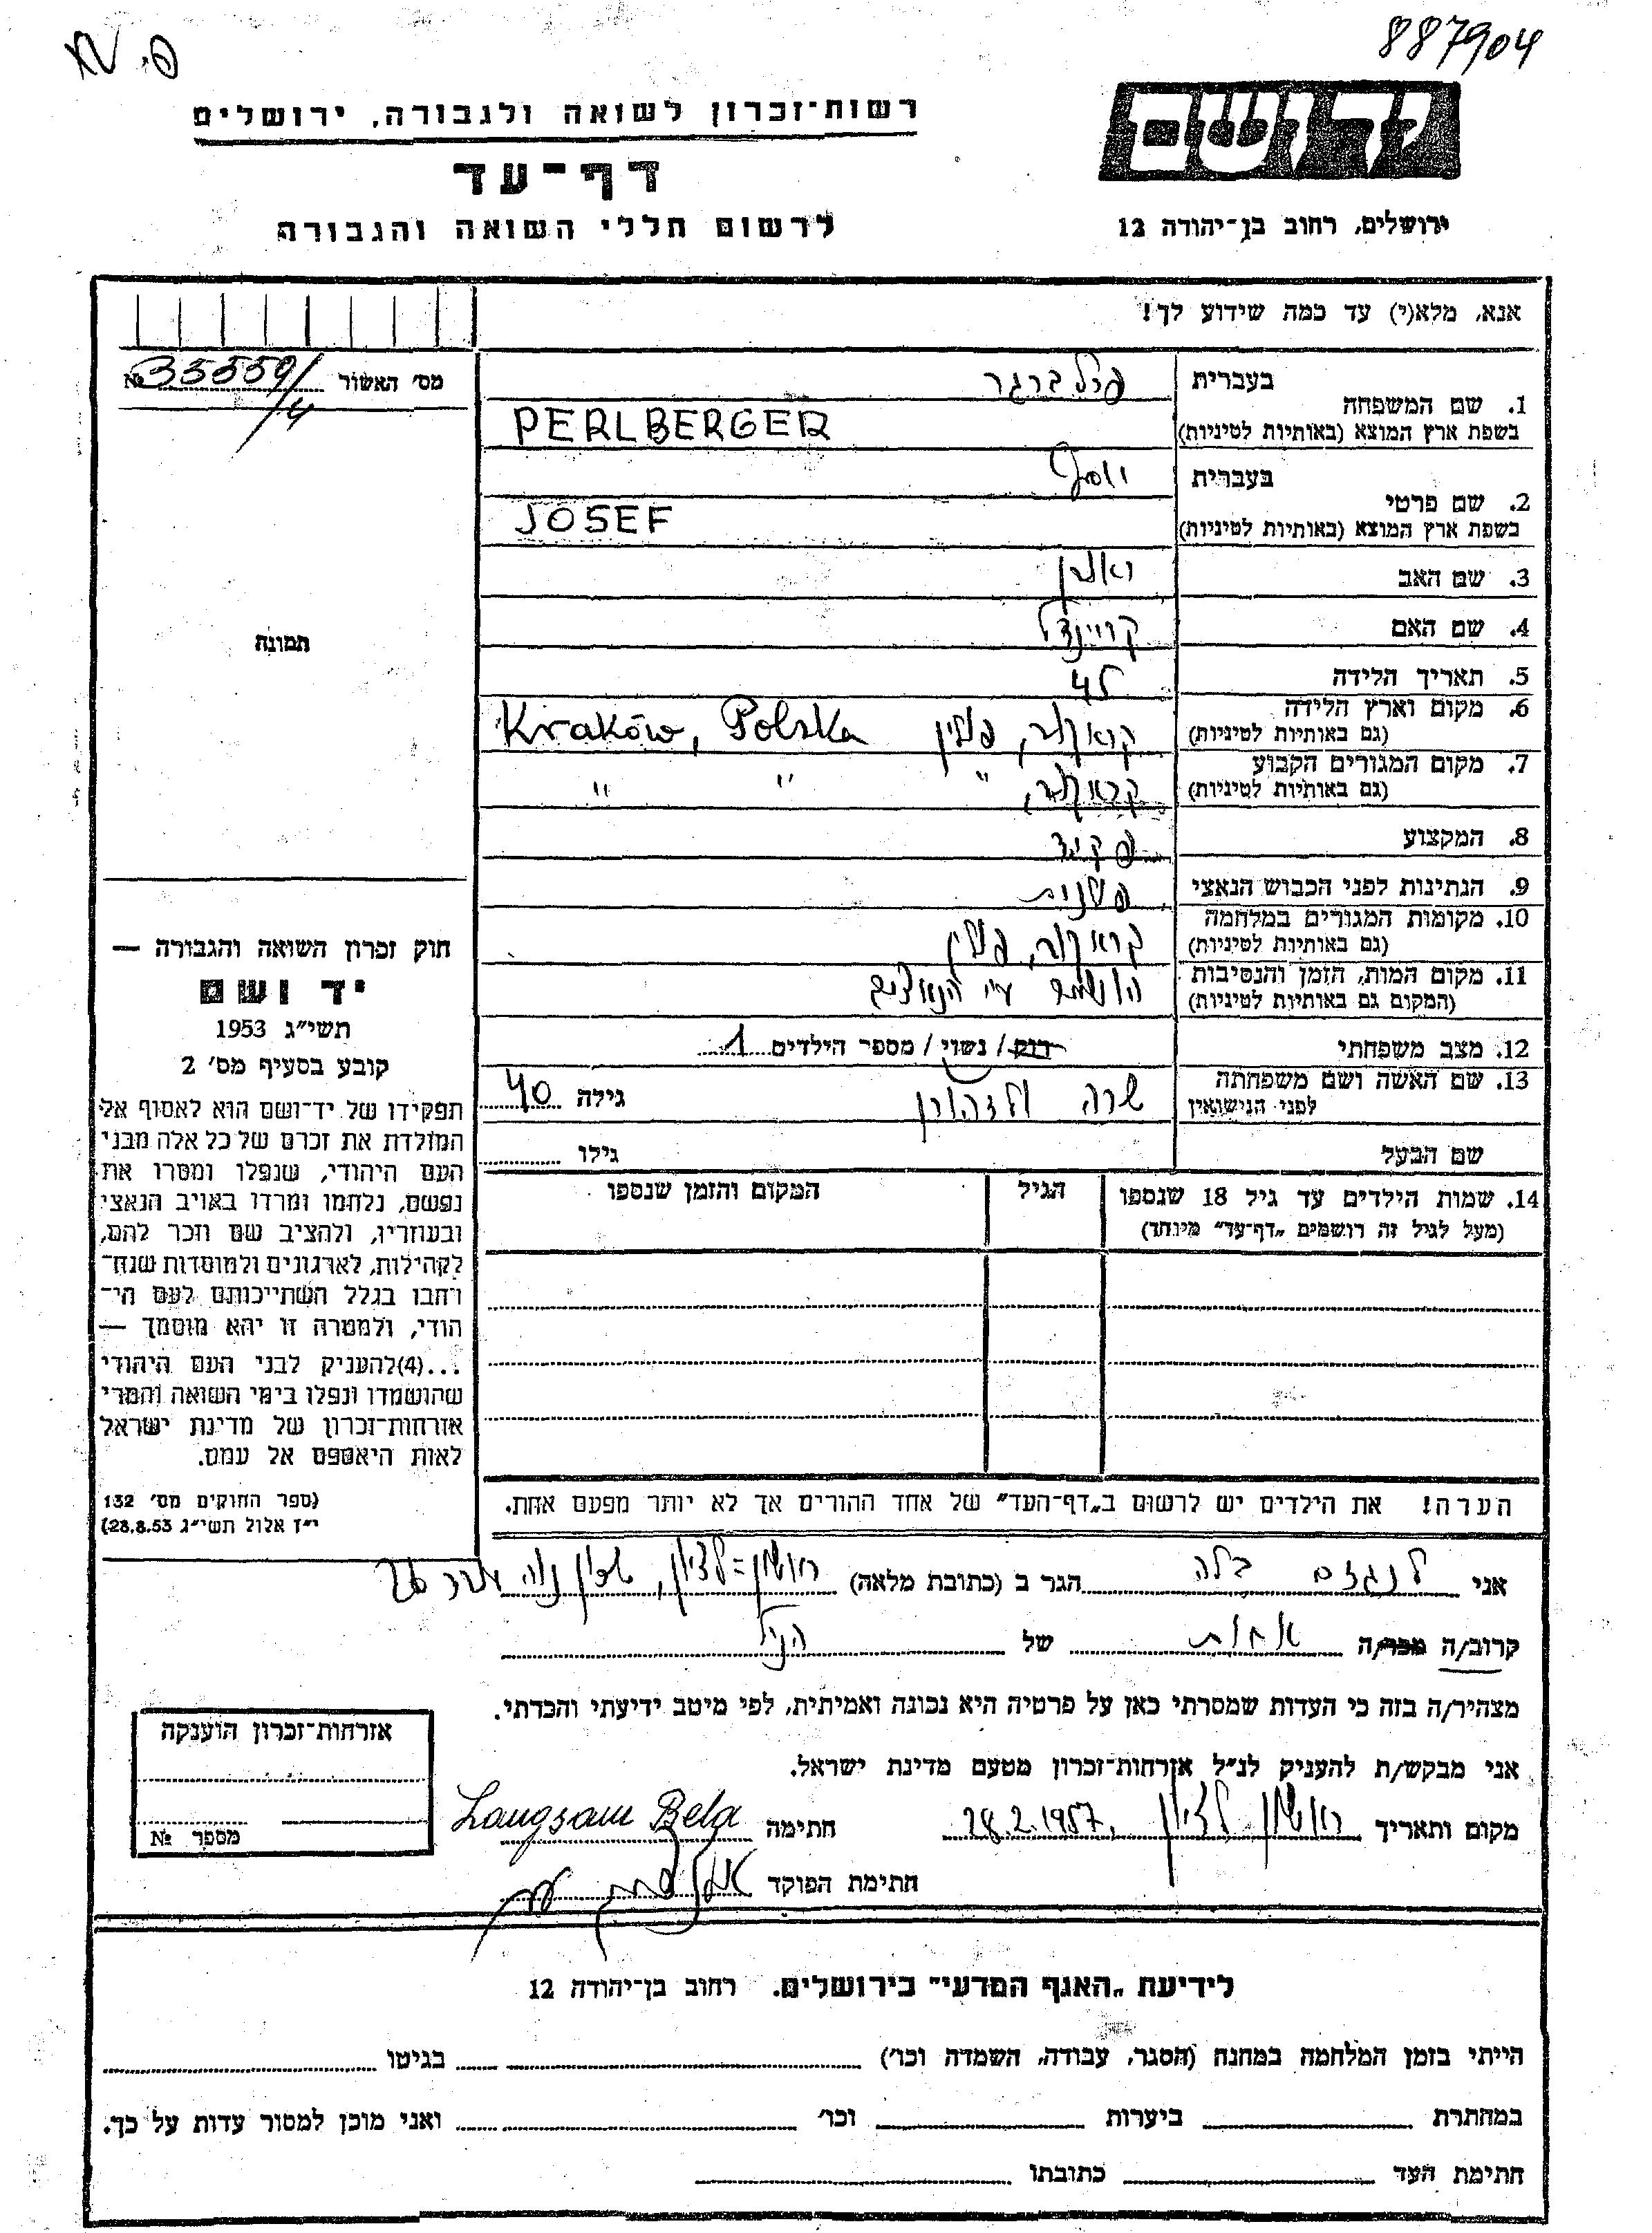 פ. ש
887904
רשות-זכרון לשואה ולגבורה, ירושלים
יד ושם
דף-עד
לרשום חללי השואה והגבורה
ירושלים, רחוב בן-יהודה 12
אנא, מלא(י) עד כמה שידוע לך!
מס' האשור № 35559/4
1. שם המשפחה
בעברית פרלברגר
בשפת ארץ המוצא (באותיות לטיניות) PERLBERGER
2. שם פרטי
בעברית יוסף
בשפת ארץ המוצא (באותיות לטיניות) JOSEF
3. שם האב
4. שם האם קריינדל
5. תאריך הלידה 45
6. מקום וארץ הלידה
(גם באותיות לטיניות) קראקוב, פולין Kraków, Polska
7. מקום המגורים הקבוע
(גם באותיות לטיניות) קראקוב, " " "
8. המקצוע פקיד
9. הנתינות לפני הכבוש הנאצי פולנית
10. מקומות המגורים במלחמה
(גם באותיות לטיניות) קראקוב, פולין
11. מקום המות, הזמן והנסיבות
(המקום גם באותיות לטיניות) הושמד ע"י הנאצים
12. מצב משפחתי רוק / נשוי / מספר הילדים 1
13. שם האשה ושם משפחתה
לפני הנישואין שרה גילה 40
שם הבעל גילו
14. שמות הילדים עד גיל 18 שנספו
(מעל לגיל זה רושמים "דף-עד" מיוחד)
הגיל
המקום והזמן שנספו
הערה! את הילדים יש לרשום ב"דף-העד" של אחד ההורים אך לא יותר מפעם אחת.
תמונה
חוק זכרון השואה והגבורה —
יד ושם
תשי"ג 1953
קובע בסעיף מס' 2
תפקידו של יד-ושם הוא לאסוף אל
המולדת את זכרם של כל אלה מבני
העם היהודי, שנפלו ומסרו את
נפשם, נלחמו ומרדו באויב הנאצי
ובעוזריו, ולהציב שם וזכר להם,
לקהילות, לארגונים ולמוסדות שנח-
רחבו בגלל השתייכותם לעם הי-
הודי, ולמטרה זו יהא מוסמך —
...(4)להעניק לבני העם היהודי
שהושמדו ונפלו בימי השואה והמרי
אזרחות-זכרון של מדינת ישראל
לאות היאספם אל עמם.
(ספר החוקים מס' 132
י"ז אלול תשי"ג 28.8.53)
אני לנגזם בלה הגר ב (כתובת מלאה) ראשון-לציון, שכון נוה 26
קרוב/ה מכר/ה אחות של הנ"ל
מצהיר/ה בזה כי העדות שמסרתי כאן על פרטיה היא נכונה ואמיתית, לפי מיטב ידיעתי והכרתי.
אני מבקש/ת להעניק לנ"ל אזרחות-זכרון מטעם מדינת ישראל.
מקום ותאריך ראשון לציון, 28.2.1957 חתימה Langsam Bela
חתימת הפוקד
אזרחות-זכרון הוענקה
מספר №
לידיעת "האגף המדעי" בירושלים. רחוב בן-יהודה 12
הייתי בזמן המלחמה במחנה (הסגר, עבודה, השמדה וכו') בגיטו
במחתרת ביערות וכו' ואני מוכן למסור עדות על כך.
חתימת העד כתובתו